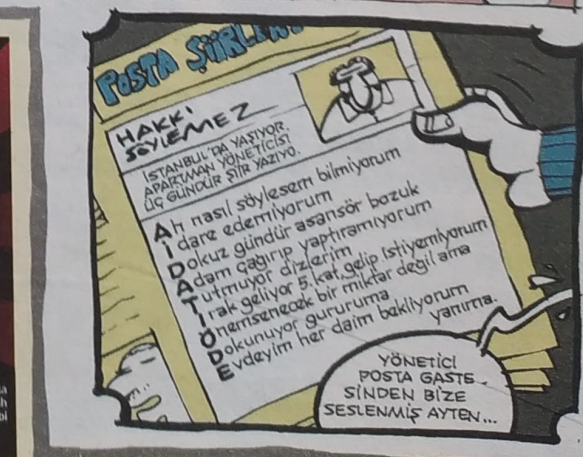 POSTA ŞİİRLERİ
HAKKI
SÖYLEMEZ
İSTANBUL'DA YAŞIYOR.
APARTMAN YÖNETİCİSİ
ÜÇ GÜNDÜR ŞİİR YAZIYO.
Ah nasıl söylesem bilmiyorum
İdare edemiyorum
Dokuz gündür asansör bozuk
Adam çağırıp yaptıramıyorum
Tutmuyor dizlerim
Irak geliyor 5. kat gelip istiyemiyorum
Önemsenecek bir miktar değil ama
Dokunuyor gururuma
Evdeyim her daim bekliyorum
yanıma.
YÖNETİCİ
POSTA GASTE
SİNDEN BİZE
SESLENMİŞ AYTEN...